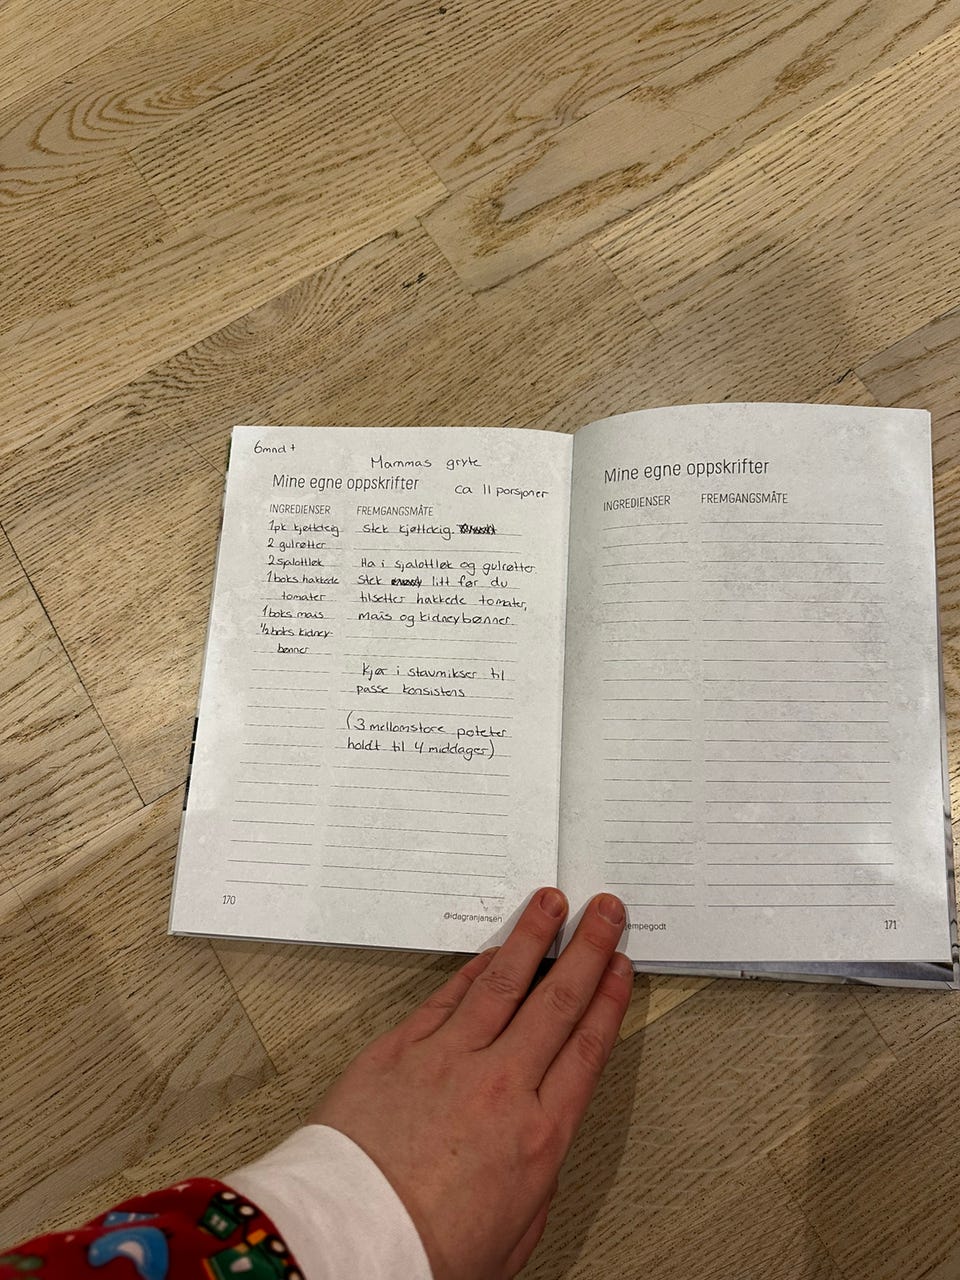 6mnd +
Mammas gryte
Mine egne oppskrifter
ca 11 porsjoner
INGREDIENSER
FREMGANGSMÅTE
1pk kjøttdeig
2 gulrøtter
2 sjalottløk
1 boks hakkede
tomater
1 boks mais
1/2 boks kidney-
bønner
stek kjøttdeig.
Ha i sjalottløk og gulrøtter.
stek litt før du
tilsetter hakkede tomater,
mais og kidneybønner.
Kjør i stavmikser til
passe konsistens
(3 mellomstore poteter
holdt til 4 middager)
170
@idagranjansen
Mine egne oppskrifter
INGREDIENSER
FREMGANGSMÅTE
171